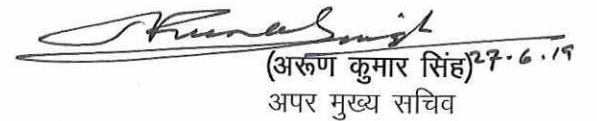 Arun Singh
(अरूण कुमार सिंह) 27.6.19
अपर मुख्य सचिव